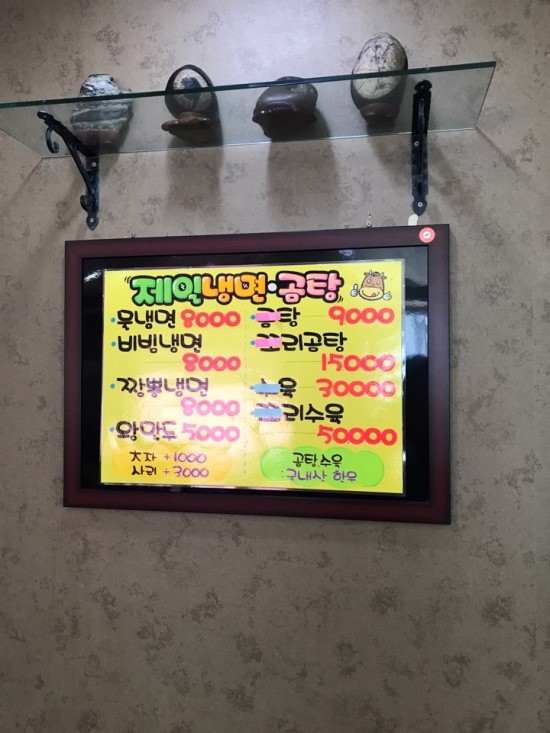 제익냉면·곰탕
물냉면 8000
비빔냉면
8000
짬뽕냉면
8000
왕만두 5000
사리 +3000
곰탕 9000
리곰탕
15000
육 30000
리수육
50000
곰탕,수육
국내산 한우